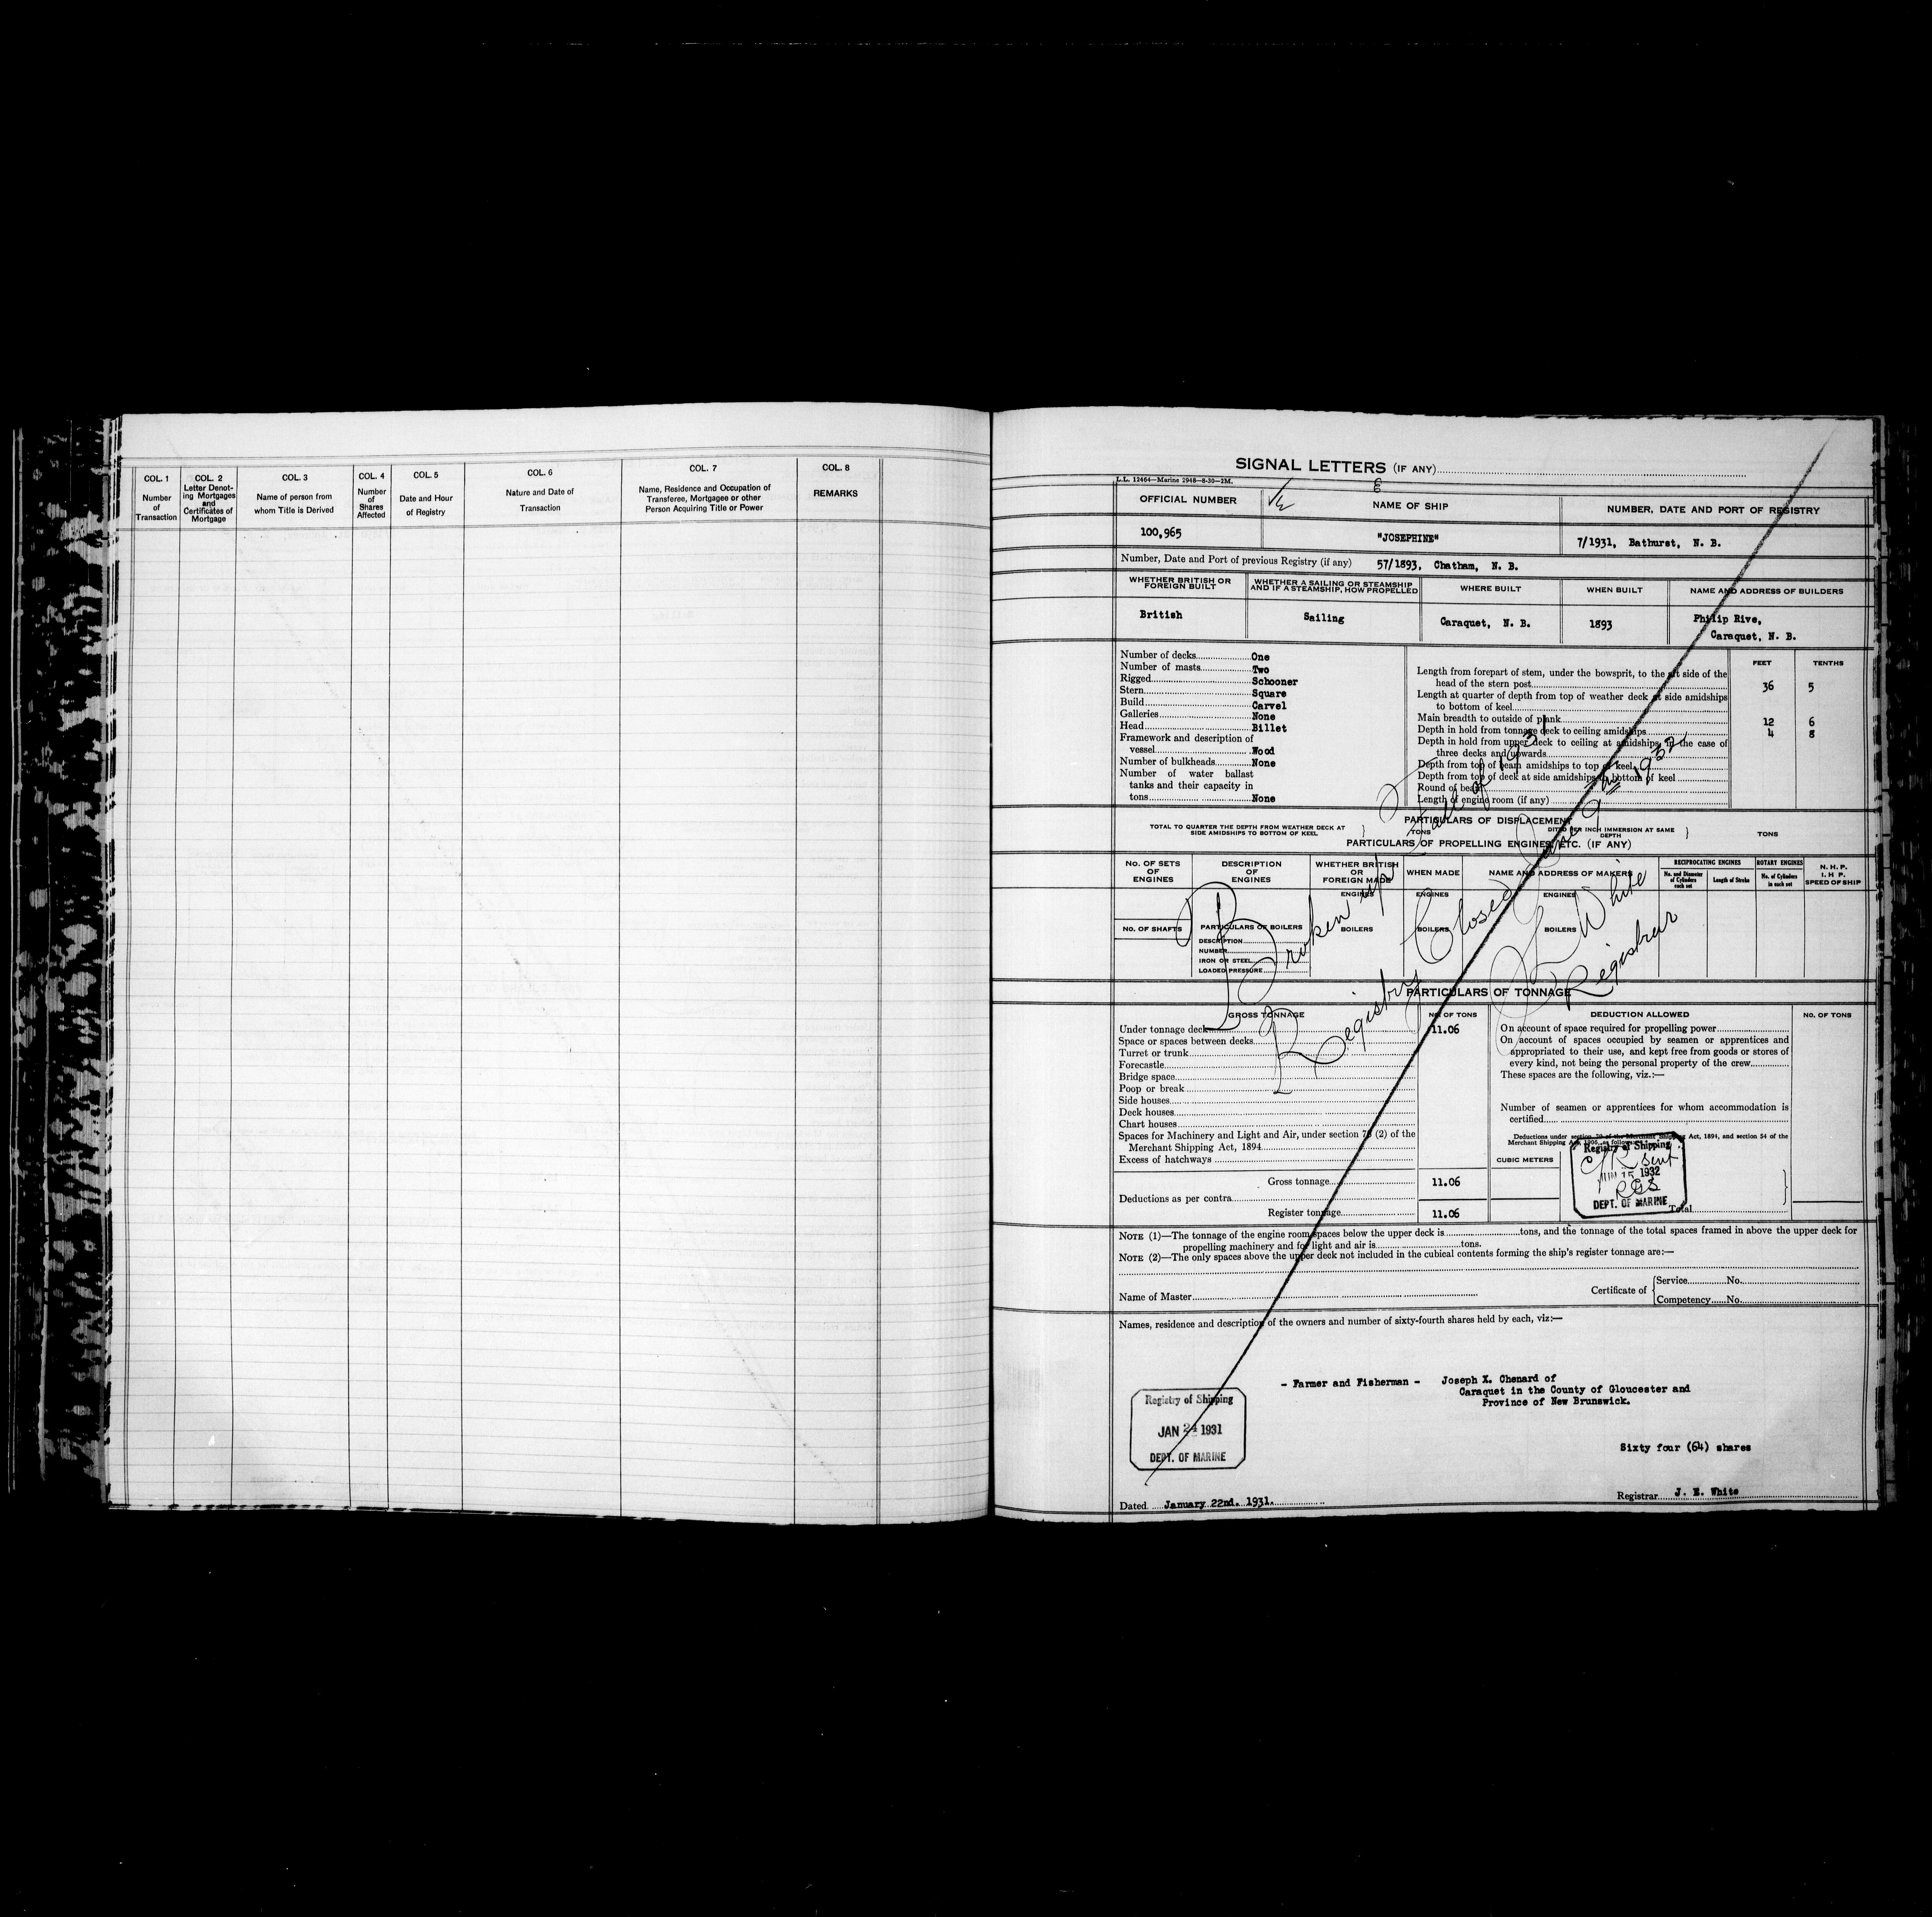 COL. 1
Number
of
Transaction
COL. 2
Letter Denot-
ing Mortgages
and
Certificates of
Mortgage
COL. 3
Name of person from
whom Title is Derived
COL. 4
Number
of
Shares
Affected
COL. 5
Date and Hour
of Registry
COL. 6
Nature and Date of
Transaction
COL. 7
Name, Residence and Occupation of
Transferee, Mortgagee or other
Person Acquiring Title or Power
COL. 8
REMARKS
SIGNAL LETTERS (IF ANY)
L.L. 12464—Marine 2948—8-30—2M.
OFFICIAL NUMBER
NAME OF SHIP
NUMBER, DATE AND PORT OF REGISTRY
100,965
"JOSEPHINE"
7/1931, Bathurst, N. B.
Number, Date and Port of previous Registry (if any) 57/1893, Chatham, N. B.
WHETHER BRITISH OR
FOREIGN BUILT
WHETHER A SAILING OR STEAMSHIP
AND IF A STEAMSHIP, HOW PROPELLED
WHERE BUILT
WHEN BUILT
NAME AND ADDRESS OF BUILDERS
British
Sailing
Caraquet, N. B.
1893
Philip Rive,
Caraquet, N. B.
Number of decks One
Number of masts Two
Rigged Schooner
Stern Square
Build Carvel
Galleries None
Head Billet
Framework and description of
vessel Wood
Number of bulkheads None
Number of water ballast
tanks and their capacity in
tons None
FEET
TENTHS
Length from forepart of stem, under the bowsprit, to the aft side of the
head of the stern post 36 5
Length at quarter of depth from top of weather deck at side amidships
to bottom of keel
Main breadth to outside of plank 12 6
Depth in hold from tonnage deck to ceiling amidships 4 8
Depth in hold from upper deck to ceiling at amidships, in the case of
three decks and upwards
Depth from top of beam amidships to top of keel
Depth from top of deck at side amidships to bottom of keel
Round of beam
Length of engine room (if any)
PARTICULARS OF DISPLACEMENT
TOTAL TO QUARTER THE DEPTH FROM WEATHER DECK AT
SIDE AMIDSHIPS TO BOTTOM OF KEEL
TONS
DITTO PER INCH IMMERSION AT SAME
DEPTH
TONS
PARTICULARS OF PROPELLING ENGINES, ETC. (IF ANY)
No. OF SETS
OF
ENGINES
DESCRIPTION
OF
ENGINES
WHETHER BRITISH
OR
FOREIGN MADE
WHEN MADE
NAME AND ADDRESS OF MAKERS
RECIPROCATING ENGINES
No. and Diameter
of Cylinders
each set
Length of Stroke
ROTARY ENGINES
No. of Cylinders
in each set
N. H. P.
I. H. P.
SPEED OF SHIP
ENGINES
ENGINES
ENGINES
No. OF SHAFTS
PARTICULARS OF BOILERS
BOILERS
BOILERS
BOILERS
DESCRIPTION
NUMBER
IRON OR STEEL
LOADED PRESSURE
Broken up Fall of 1931
Registry Closed June 9th 1932
J E White
Registrar
PARTICULARS OF TONNAGE
GROSS TONNAGE
No. OF TONS
DEDUCTION ALLOWED
No. OF TONS
Under tonnage deck 11.06
Space or spaces between decks
Turret or trunk
Forecastle
Bridge space
Poop or break
Side houses
Deck houses
Chart houses
Spaces for Machinery and Light and Air, under section 78 (2) of the
Merchant Shipping Act, 1894
Excess of hatchways
Gross tonnage 11.06
Deductions as per contra
Register tonnage 11.06
On account of space required for propelling power
On account of spaces occupied by seamen or apprentices and
appropriated to their use, and kept free from goods or stores of
every kind, not being the personal property of the crew
These spaces are the following, viz.:—
Number of seamen or apprentices for whom accommodation is
certified
Deductions under section 79 of the Merchant Shipping Act, 1894, and section 54 of the
Merchant Shipping Act, 1906, as follows
CUBIC METERS
Registry of Shipping
C/R sent
JUN 15 1932
DEPT. OF MARINE
Total
NOTE (1)—The tonnage of the engine room spaces below the upper deck is tons, and the tonnage of the total spaces framed in above the upper deck for
propelling machinery and for light and air is tons.
NOTE (2)—The only spaces above the upper deck not included in the cubical contents forming the ship's register tonnage are:—
Name of Master
Certificate of
Service No.
Competency No.
Names, residence and description of the owners and number of sixty-fourth shares held by each, viz:—
- Farmer and Fisherman - Joseph X. Chenard of
Caraquet in the County of Gloucester and
Province of New Brunswick.
Registry of Shipping
JAN 24 1931
DEPT. OF MARINE
Sixty four (64) shares
Dated January 22nd. 1931.
Registrar J. E. White